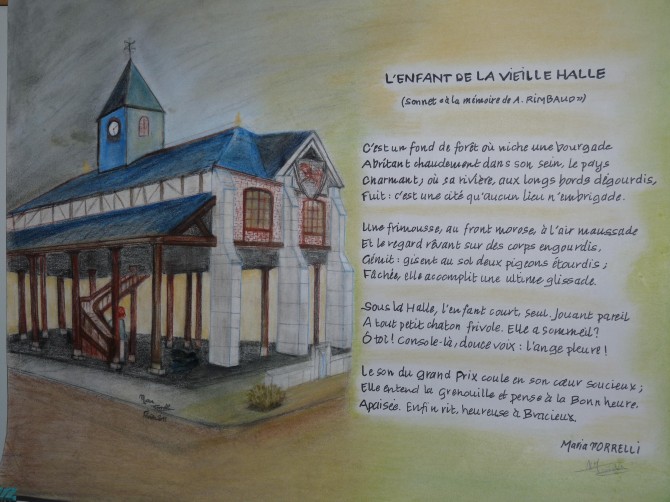 L'ENFANT DE LA VIEILLE HALLE
(Sonnet «à la mémoire de A. RIMBAUD»)
C'est un fond de forêt où niche une bourgade
Abritant chaudement dans son sein, le pays
Charmant; où sa rivière, aux longs bords dégourdis,
Fuit : c'est une cité qu'aucun lieu n'embrigade.
Une frimousse, au front morose, à l'air maussade
Et le regard rêvant sur des corps engourdis,
Gémit : gisent au sol deux pigeons étourdis ;
Fâchée, elle accomplit une ultime glissade.
Sous la Halle, l'enfant court, seul. Jouant pareil
A tout petit chaton frivole. Elle a sommeil ?
Ô toi ! Console-là, douce voix : l'ange pleure !
Le son du grand Prix coule en son cœur soucieux ;
Elle entend la Grenouille et pense à la Bonn heure.
Apaisée. Enfin rit, heureuse à Bracieux.
Maria TORRELLI